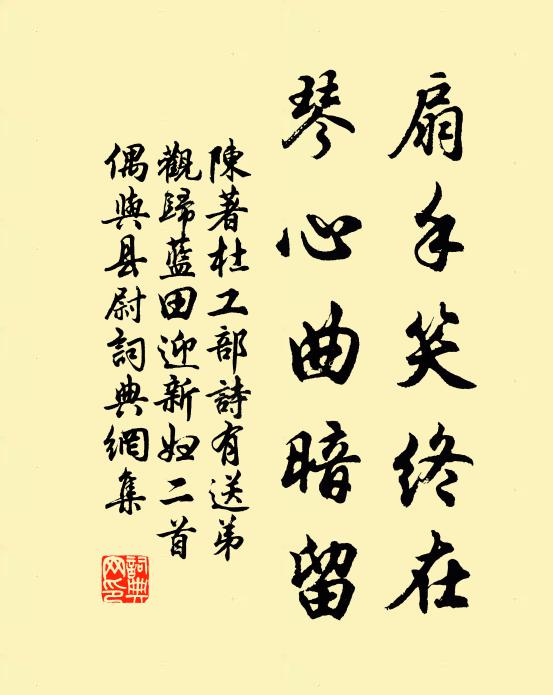 扇手笑终在
琴心曲暗留
陳著杜工部詩有送弟
觀歸藍田迎新妇二首
偶與县尉詞典網集
詞典网印